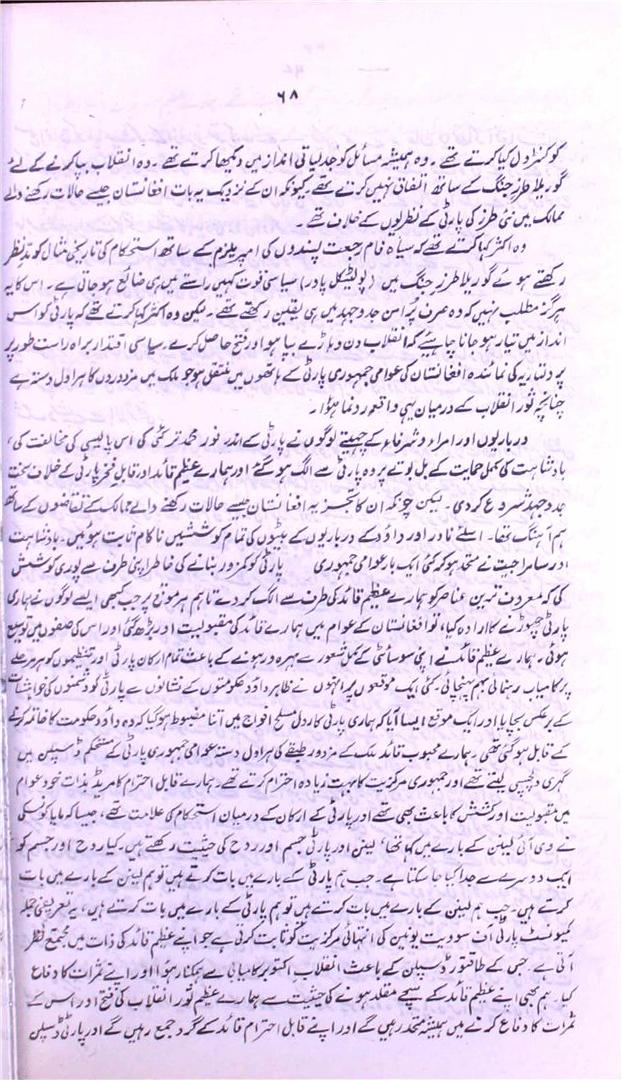 ۶۸
کو کنٹرول کیا کرتے تھے۔ وہ ہمیشہ مسائل کو جدلیاتی انداز میں دیکھا کرتے تھے۔ وہ انقلاب بپا کرنے کے لئے
گوریلا طرز جنگ کے ساتھ اتفاق نہیں کرتے تھے۔ کیونکہ ان کے نزدیک یہ بات افغانستان جیسے حالات رکھنے والے
ممالک میں نئی طرز کی پارٹی کے نظریوں کے خلاف تھے۔
وہ اکثر کہا کرتے تھے کہ سیاہ فام رجعت پسندوں کی امپریلزم کے ساتھ استحکام کی تاریخی مثال کو مدنظر
رکھتے ہوئے گوریلا طرز جنگ میں (پولٹیکل پاور) سیاسی قوت کہیں راستے میں ہی ضائع ہو جاتی ہے۔ اس کا یہ
ہرگز مطلب نہیں کہ وہ صرف پُر امن جدوجہد میں ہی یقین رکھتے تھے۔ لیکن وہ اکثر کہا کرتے تھے کہ پارٹی کو اس
انداز میں تیار ہو جانا چاہیئے کہ انقلاب دن دہاڑے بپا ہو اور فتح حاصل کرے۔ سیاسی اقتدار براہ راست طور پر
پرولتاریہ کی نمائندہ افغانستان کی عوامی جمہوری پارٹی کے ہاتھوں میں منتقل ہو جو ملک میں مزدوروں کا ہراول دستہ ہے
چنانچہ ثور انقلاب کے درمیان یہی واقعہ رونما ہوا۔
درباریوں اور امراء و شرفاء کے چہیتے لوگوں نے پارٹی کے اندر نور محمد ترکئی کی اس پالیسی کی مخالفت کی،
بادشاہت کی مکمل حمایت کے بل بوتے پر وہ پارٹی سے الگ ہو گئے اور ہمارے عظیم قائد اور قابل فخر پارٹی کے خلاف سخت
جدوجہد شروع کر دی۔ لیکن چونکہ ان کا تجزیہ افغانستان جیسے حالات رکھنے والے ممالک کے تقاضوں کے ساتھ
ہم آہنگ تھا۔ اسلئے نادر اور داؤد کے درباریوں کے بیٹوں کی تمام کوششیں ناکام ثابت ہوئیں۔ بادشاہت
اور سامراجیت نے متحد ہو کر کئی ایک بار عوامی جمہوری پارٹی کو کمزور بنانے کی خاطر اپنی طرف سے پوری کوشش
کی کہ معروف ترین عناصر کو ہمارے عظیم قائد کی طرف سے الگ کر دے تاہم ہر موقع پر جب کبھی ایسے لوگوں نے ہماری
پارٹی چھوڑنے کا ارادہ کیا، تو افغانستان کے عوام میں ہمارے قائد کی مقبولیت اور بڑھ گئی اور اس کی صفوں میں توسیع
ہوئی۔ ہمارے عظیم قائد نے اپنی سوسائٹی کے مکمل شعور سے بہرہ ور ہونے کے باعث تمام ارکان پارٹی اور تنظیموں کو ہر مرحلے
پر کامیاب رہنمائی بہم پہنچائی۔ کئی ایک موقعوں پر انہوں نے ظاہر داؤد حکومتوں کے نشانوں سے پارٹی کو دشمنوں کی خواہشات
کے برعکس بچایا اور ایک موقع ایسا آیا کہ ہماری پارٹی کا رول مسلح افواج میں اتنا مضبوط ہو گیا کہ وہ داؤد حکومت کا خاتمہ کرنے
کے قابل ہو گئی تھی۔ ہمارے محبوب قائد ملک کے مزدور طبقے کی ہراول دستہ عوامی جمہوری پارٹی کے مستحکم ڈسپلن میں
گہری دلچسپی لیتے تھے اور جمہوری مرکزیت کا بہت زیادہ احترام کرتے تھے۔ ہمارے قابل احترام کامریڈ بذات خود عوام
میں مقبولیت اور کشش کا باعث بھی تھے اور پارٹی کے ارکان کے درمیان استحکام کی علامت تھے، جیسا کہ مایاکوفسکی
نے وی آئی لینن کے بارے میں کہا تھا، لینن اور پارٹی جسم اور روح کی حیثیت رکھتے ہیں۔ کیا روح اور جسم کو
ایک دوسرے سے جدا کیا جا سکتا ہے۔ جب ہم پارٹی کے بارے میں بات کرتے ہیں تو ہم لینن کے بارے میں بات
کرتے ہیں۔ جب ہم لینن کے بارے میں بات کرتے ہیں تو ہم پارٹی کے بارے میں بات کرتے ہیں، یہ تعریفی جملہ
کمیونسٹ پارٹی آف سوویت یونین کی انتہائی مرکزیت کو ثابت کرتی ہے جو اپنے عظیم قائد کی ذات میں مجتمع نظر
آتی ہے۔ جس کے طاقتور ڈسپلن کے باعث انقلاب اکتوبر کامیابی سے ہمکنار ہوا اور اپنے ثمرات کا دفاع
کیا۔ ہم بھی اپنے عظیم قائد کے سچے مقلد ہونے کی حیثیت سے ہمارے عظیم ثور انقلاب کی فتح اور اس کے
ثمرات کا دفاع کرنے میں ہمیشہ متحد رہیں گے اور اپنے قابل احترام قائد کے گرد جمع رہیں گے اور پارٹی ڈسپلن